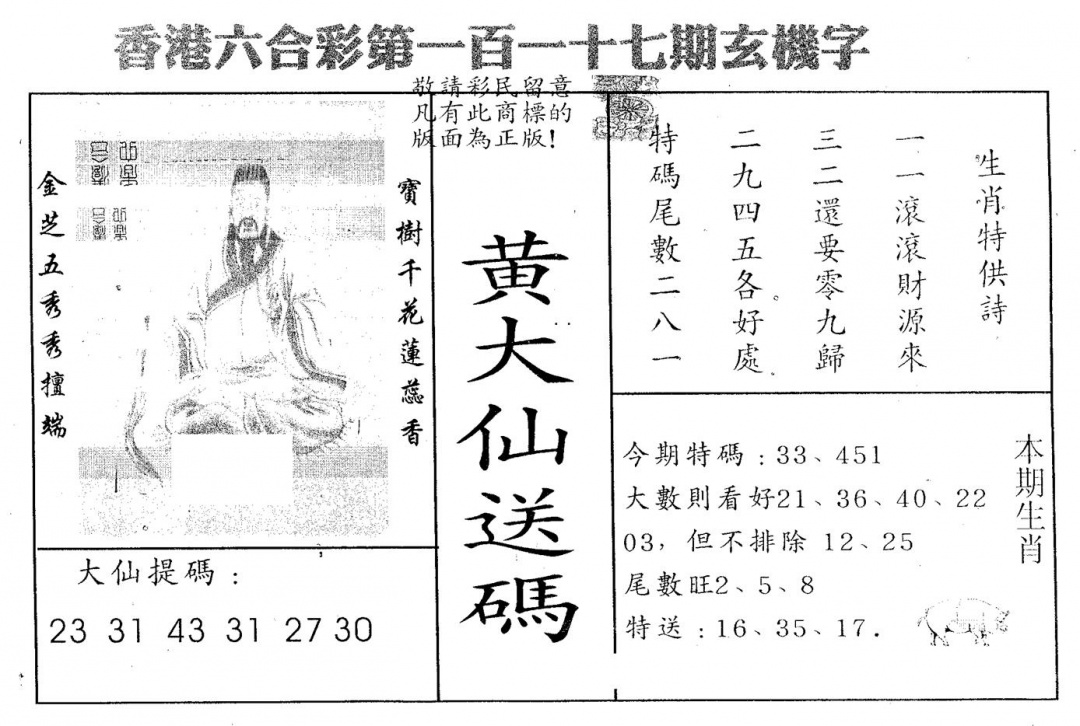 香港六合彩第一百一十七期玄機字
敬請彩民留意
凡有此商標的
版面為正版!
金芝五秀秀擅端
寶樹千花蓮蕊香
大仙提碼:
23 31 43 31 27 30
黄大仙送碼
生肖特供詩
一一滾滾財源來
三二還要零九歸
二九四五各好處
特碼尾數二八一
今期特碼:33、451
大數則看好21、36、40、22
03,但不排除 12、25
尾數旺2、5、8
特送:16、35、17.
本期生肖